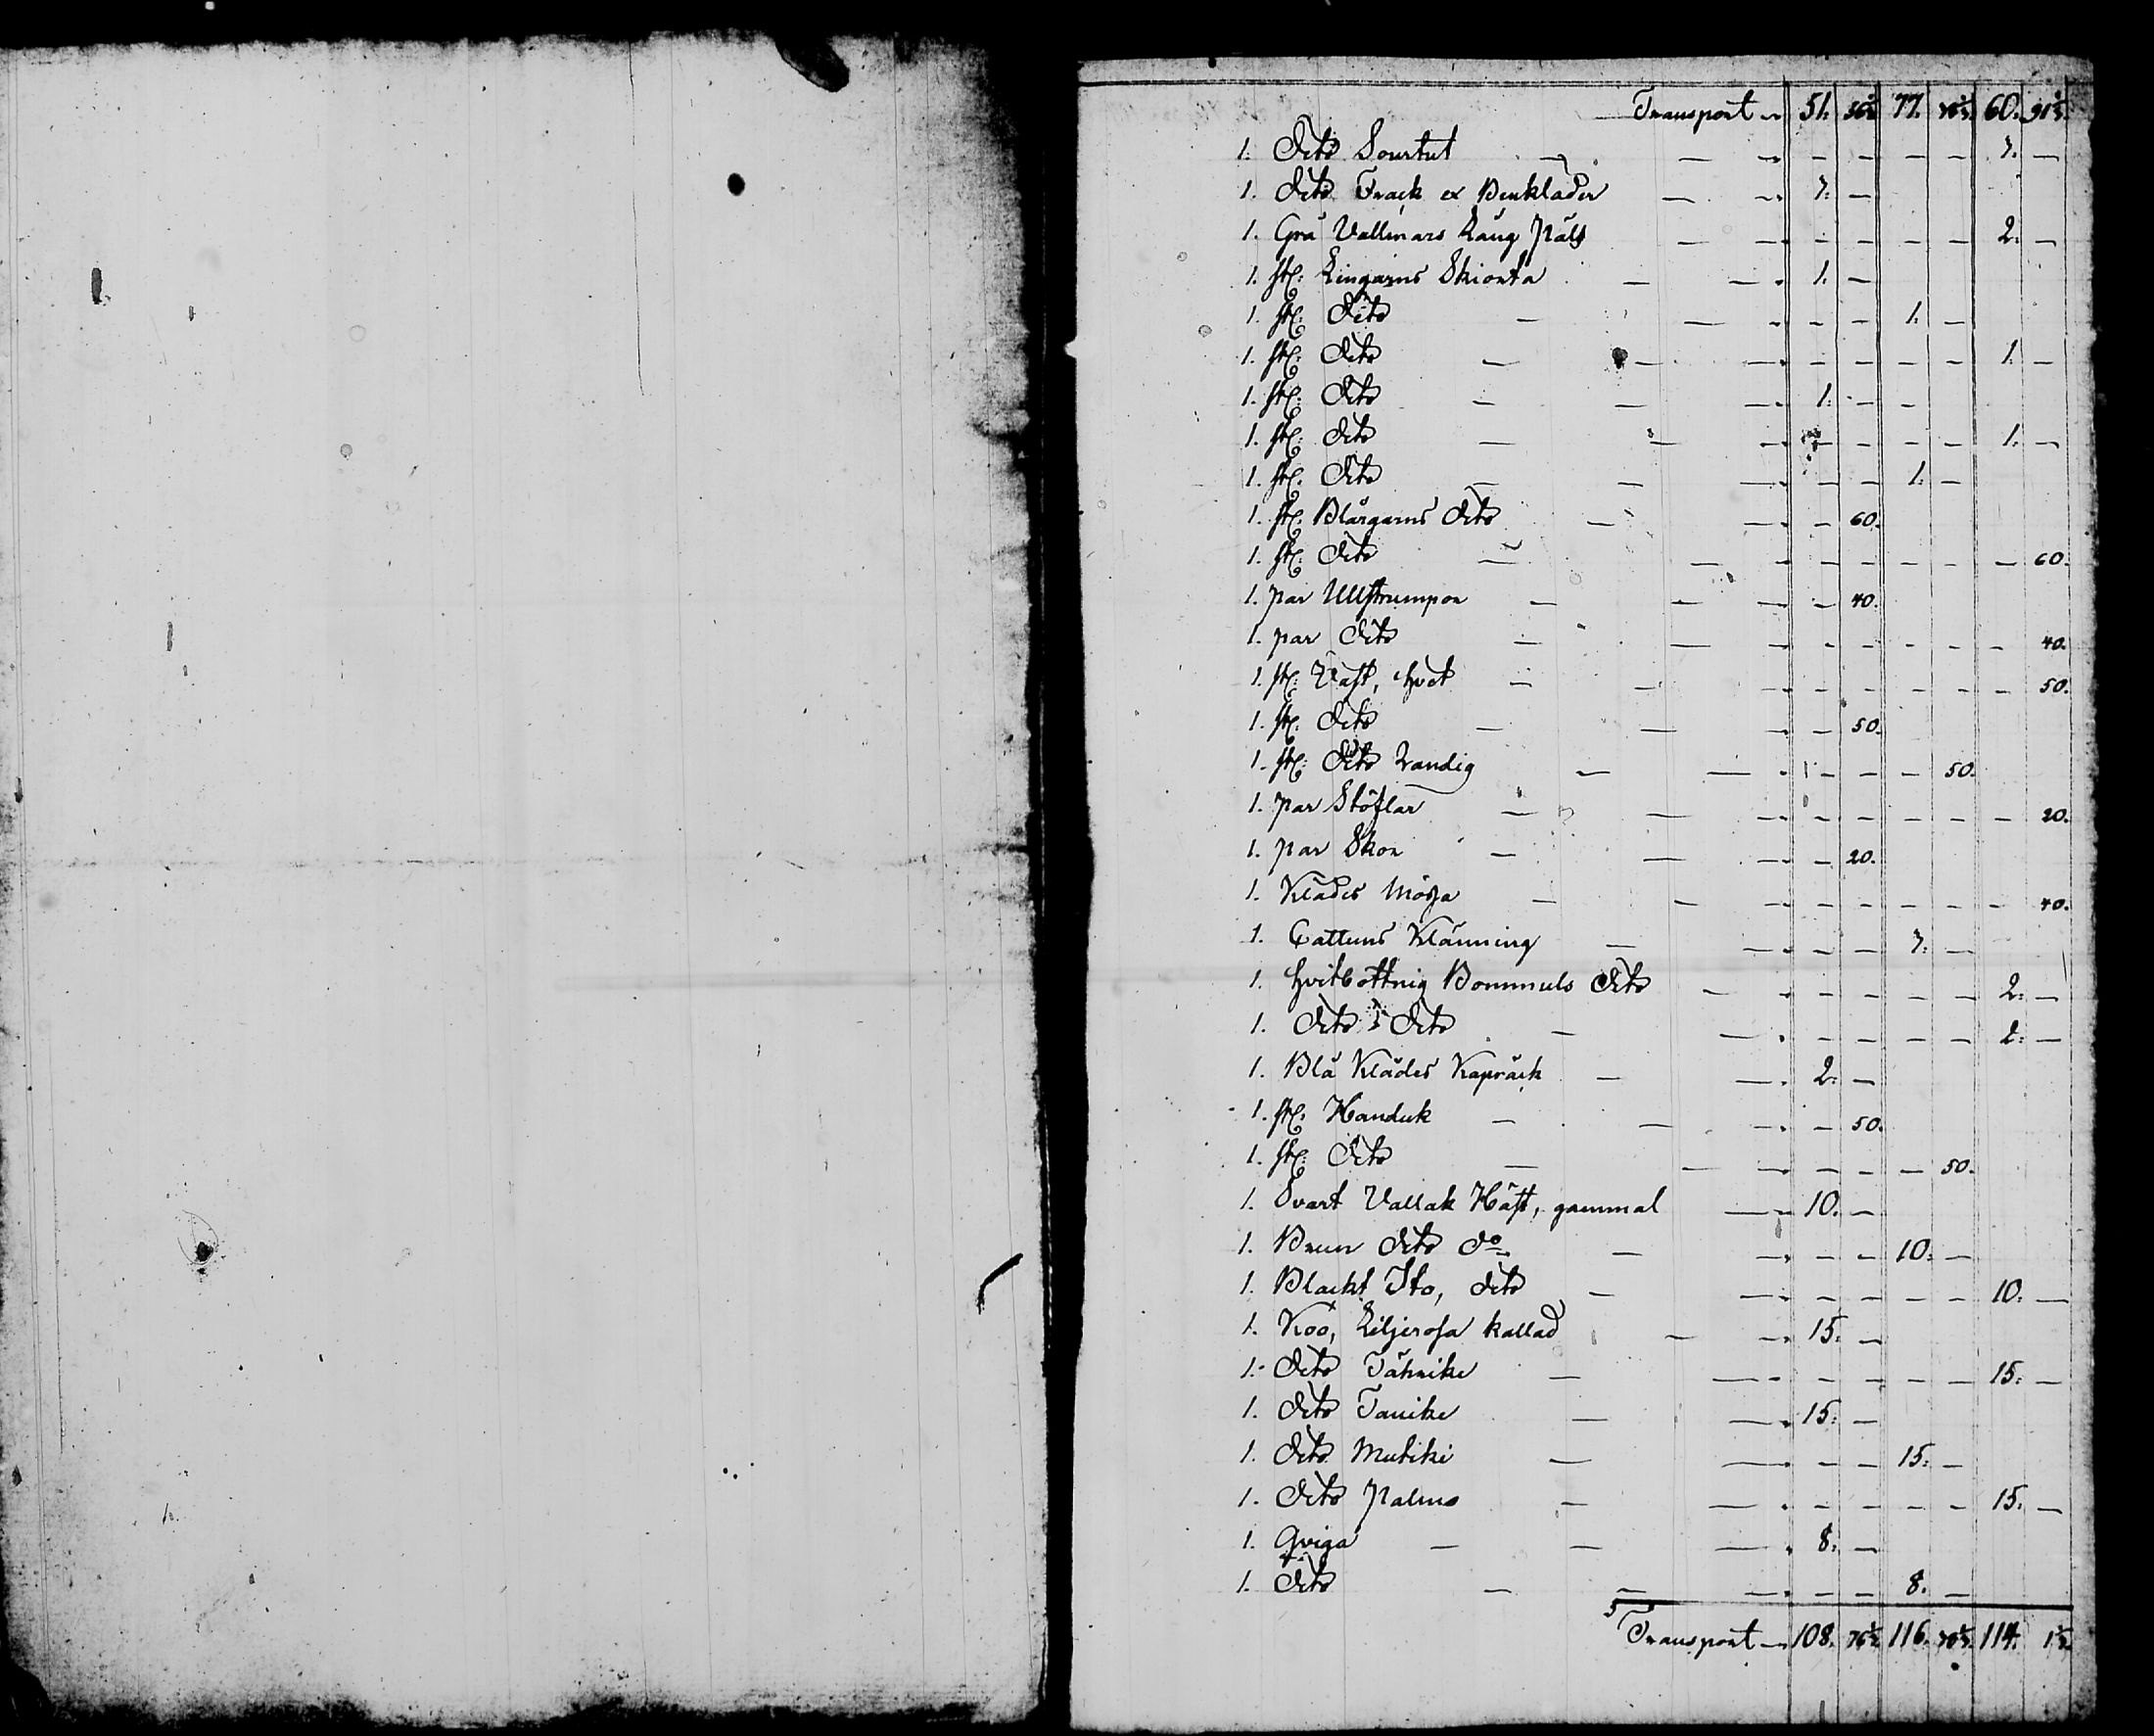 Transport 51. 56½ 77. 78½ 60. 91½
1. Dito Sourtut — — — — — — 3. —
1. Dito Frack & Benkläder — — 3. —
1. Grå Vallmars Lång Päls — — — — — — 2. —
1. st: Lingarns Skiorta — — 1. —
1. st: Dito — — — — 1. —
1. st: Dito — — — — — — 1. —
1. st: Dito — — 1. — —
1. st: Dito — — — — — — 1. —
1. st: Dito — — — — 1. —
1. st: Blårgarns Dito — — — 60.
1. st: Dito — — — — — — — 60.
1. par Ullstrumpor — — — — 40.
1. par Dito — — — — — — — 40.
1. st: Väst, hvit — — — — — — — — 50.
1. st: Dito — — — — 50.
1. st: Dito Randig — — — — — 50.
1. par Stöflar — — — — — — — — 20.
1. par Skor — — — — 20.
1. Klädes Mössa — — — — — — — — 40.
1. Cattuns Klänning — — — — 3. —
1. hvitbottnig Bommuls Dito — — — — — — 2. —
1. Dito Dito — — — — — — 2. —
1. Blå Klädes Kapråck — — 2. —
1. st: Handuk — — — — 50.
1. st: Dito — — — — — — 50.
1. Svart Vallak Häst, gammal — 10. —
1. Brun Dito do — — — — 10. —
1. Blackt Sto, Dito — — — — — — 10. —
1. Koo, Liljerosa kallad — — 15. —
1. Dito Tähnike — — — — — — 15. —
1. Dito Tanike — — 15. —
1. Dito Mutiki — — — — 15. —
1. Dito Palmo — — — — — — 15. —
1. Qviga — — — 8. —
1. Dito — — — — — 8. —
Transport 108. 76½ 116. 78½ 114. 1½